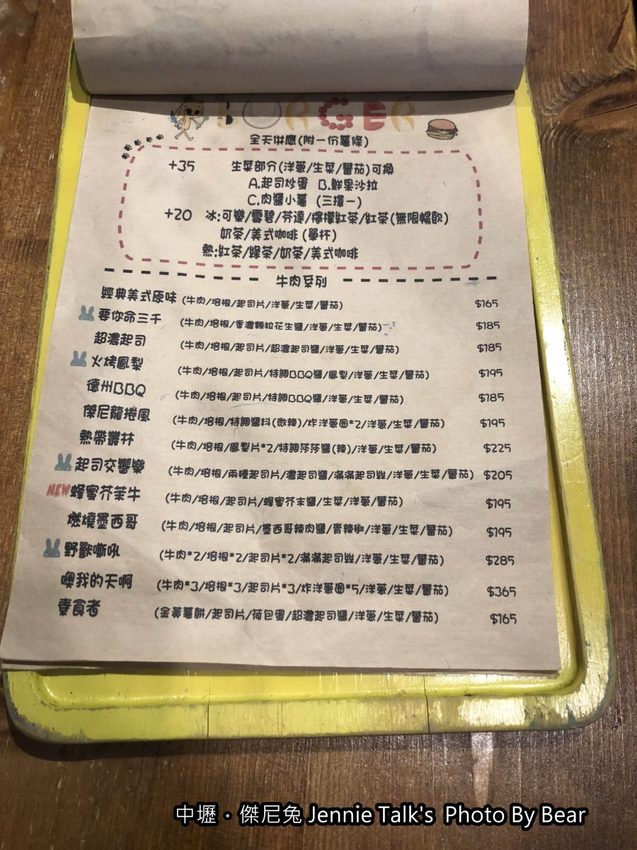 BURGER
全天供應(附一份薯條)
+35 生菜部分(洋蔥/生菜/番茄)可換
A.起司炒蛋 B.鮮果沙拉
C.肉醬小薯 (三擇一)
+20 冰:可樂/雪碧/芬達/檸檬紅茶/紅茶(無限暢飲)
奶茶/美式咖啡(單杯)
熱:紅茶/綠茶/奶茶/美式咖啡
牛肉系列
經典美式原味 (牛肉/培根/起司片/洋蔥/生菜/番茄) $165
要你命三千 (牛肉/培根/香濃顆粒花生醬/洋蔥/生菜/番茄) $185
超濃起司 (牛肉/培根/起司片/超濃起司醬/洋蔥/生菜/番茄) $185
火烤鳳梨 (牛肉/培根/起司片/特調BBQ醬/鳳梨/洋蔥/生菜/番茄) $195
德州BBQ (牛肉/培根/起司片/特調BBQ醬/洋蔥/生菜/番茄) $185
傑尼龍捲風 (牛肉/培根/特調醬料(微辣)/炸洋蔥圈*2/洋蔥/生菜/番茄) $195
熱帶叢林 (牛肉/培根/鳳梨片*2/特調莎莎醬(辣)/洋蔥/生菜/番茄) $225
起司交響樂 (牛肉/培根/兩種起司片/濃起司醬/滿滿起司絲/洋蔥/生菜/番茄) $205
NEW 蜂蜜芥茉牛 (牛肉/培根/起司片/蜂蜜芥末醬/生菜/番茄) $195
燃燒墨西哥 (牛肉/培根/起司片/墨西哥辣肉醬/青辣椒/洋蔥/生菜/番茄) $195
野獸嘶吼 (牛肉*2/培根*2/起司片*2/滿滿起司絲/洋蔥/生菜/番茄) $285
噢我的天啊 (牛肉*3/培根*3/起司片*3/炸洋蔥圈*5/洋蔥/生菜/番茄) $365
素食者 (金黃薯餅/起司片/荷包蛋/超濃起司醬/洋蔥/生菜/番茄) $165
中壢・傑尼兔 Jennie Talk's Photo By Bear